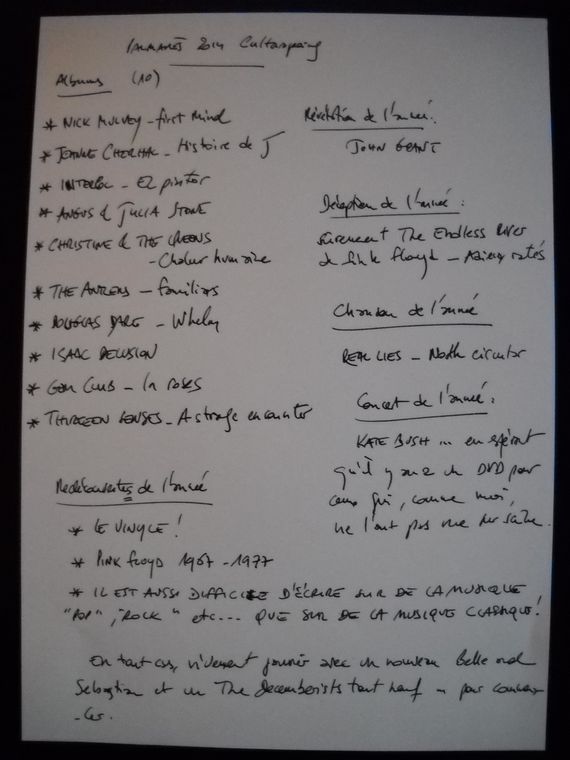 PALMARÈS 2014 Culturopoing
Albums (10)
* NICK MULVEY - first mind
* JEANNE CHERHAL - Histoire de J
* INTERPOL - El pintor
* ANGUS & JULIA STONE
* CHRISTINE & THE QUEENS
- Chaleur humaine
* THE ANTLERS - familiars
* DOUGLAS DARE - Whelm
* ISAAC DELUSION
* GEM CLUB - In roses
* THIRTEEN SENSES - A strange encounter
Redécouvertes de l'année
* LE VINYLE !
* PINK FLOYD 1967 - 1977
* IL EST AUSSI DIFFICILE D'ÉCRIRE SUR DE LA MUSIQUE
"POP", "ROCK" etc... QUE SUR DE LA MUSIQUE CLASSIQUE !
Révélation de l'année :
JOHN GRANT
Déception de l'année :
sûrement The Endless River
de Pink Floyd - Adieux ratés
Chanson de l'année
REAL LIES - North circular
Concert de l'année :
KATE BUSH ... en espérant
qu'il y aura un DVD pour
ceux qui, comme moi,
ne l'ont pas vue sur scène.
En tout cas, vivement janvier avec un nouveau Belle and
Sebastian et un The Decemberists tout neuf - pour commen-
-cer.